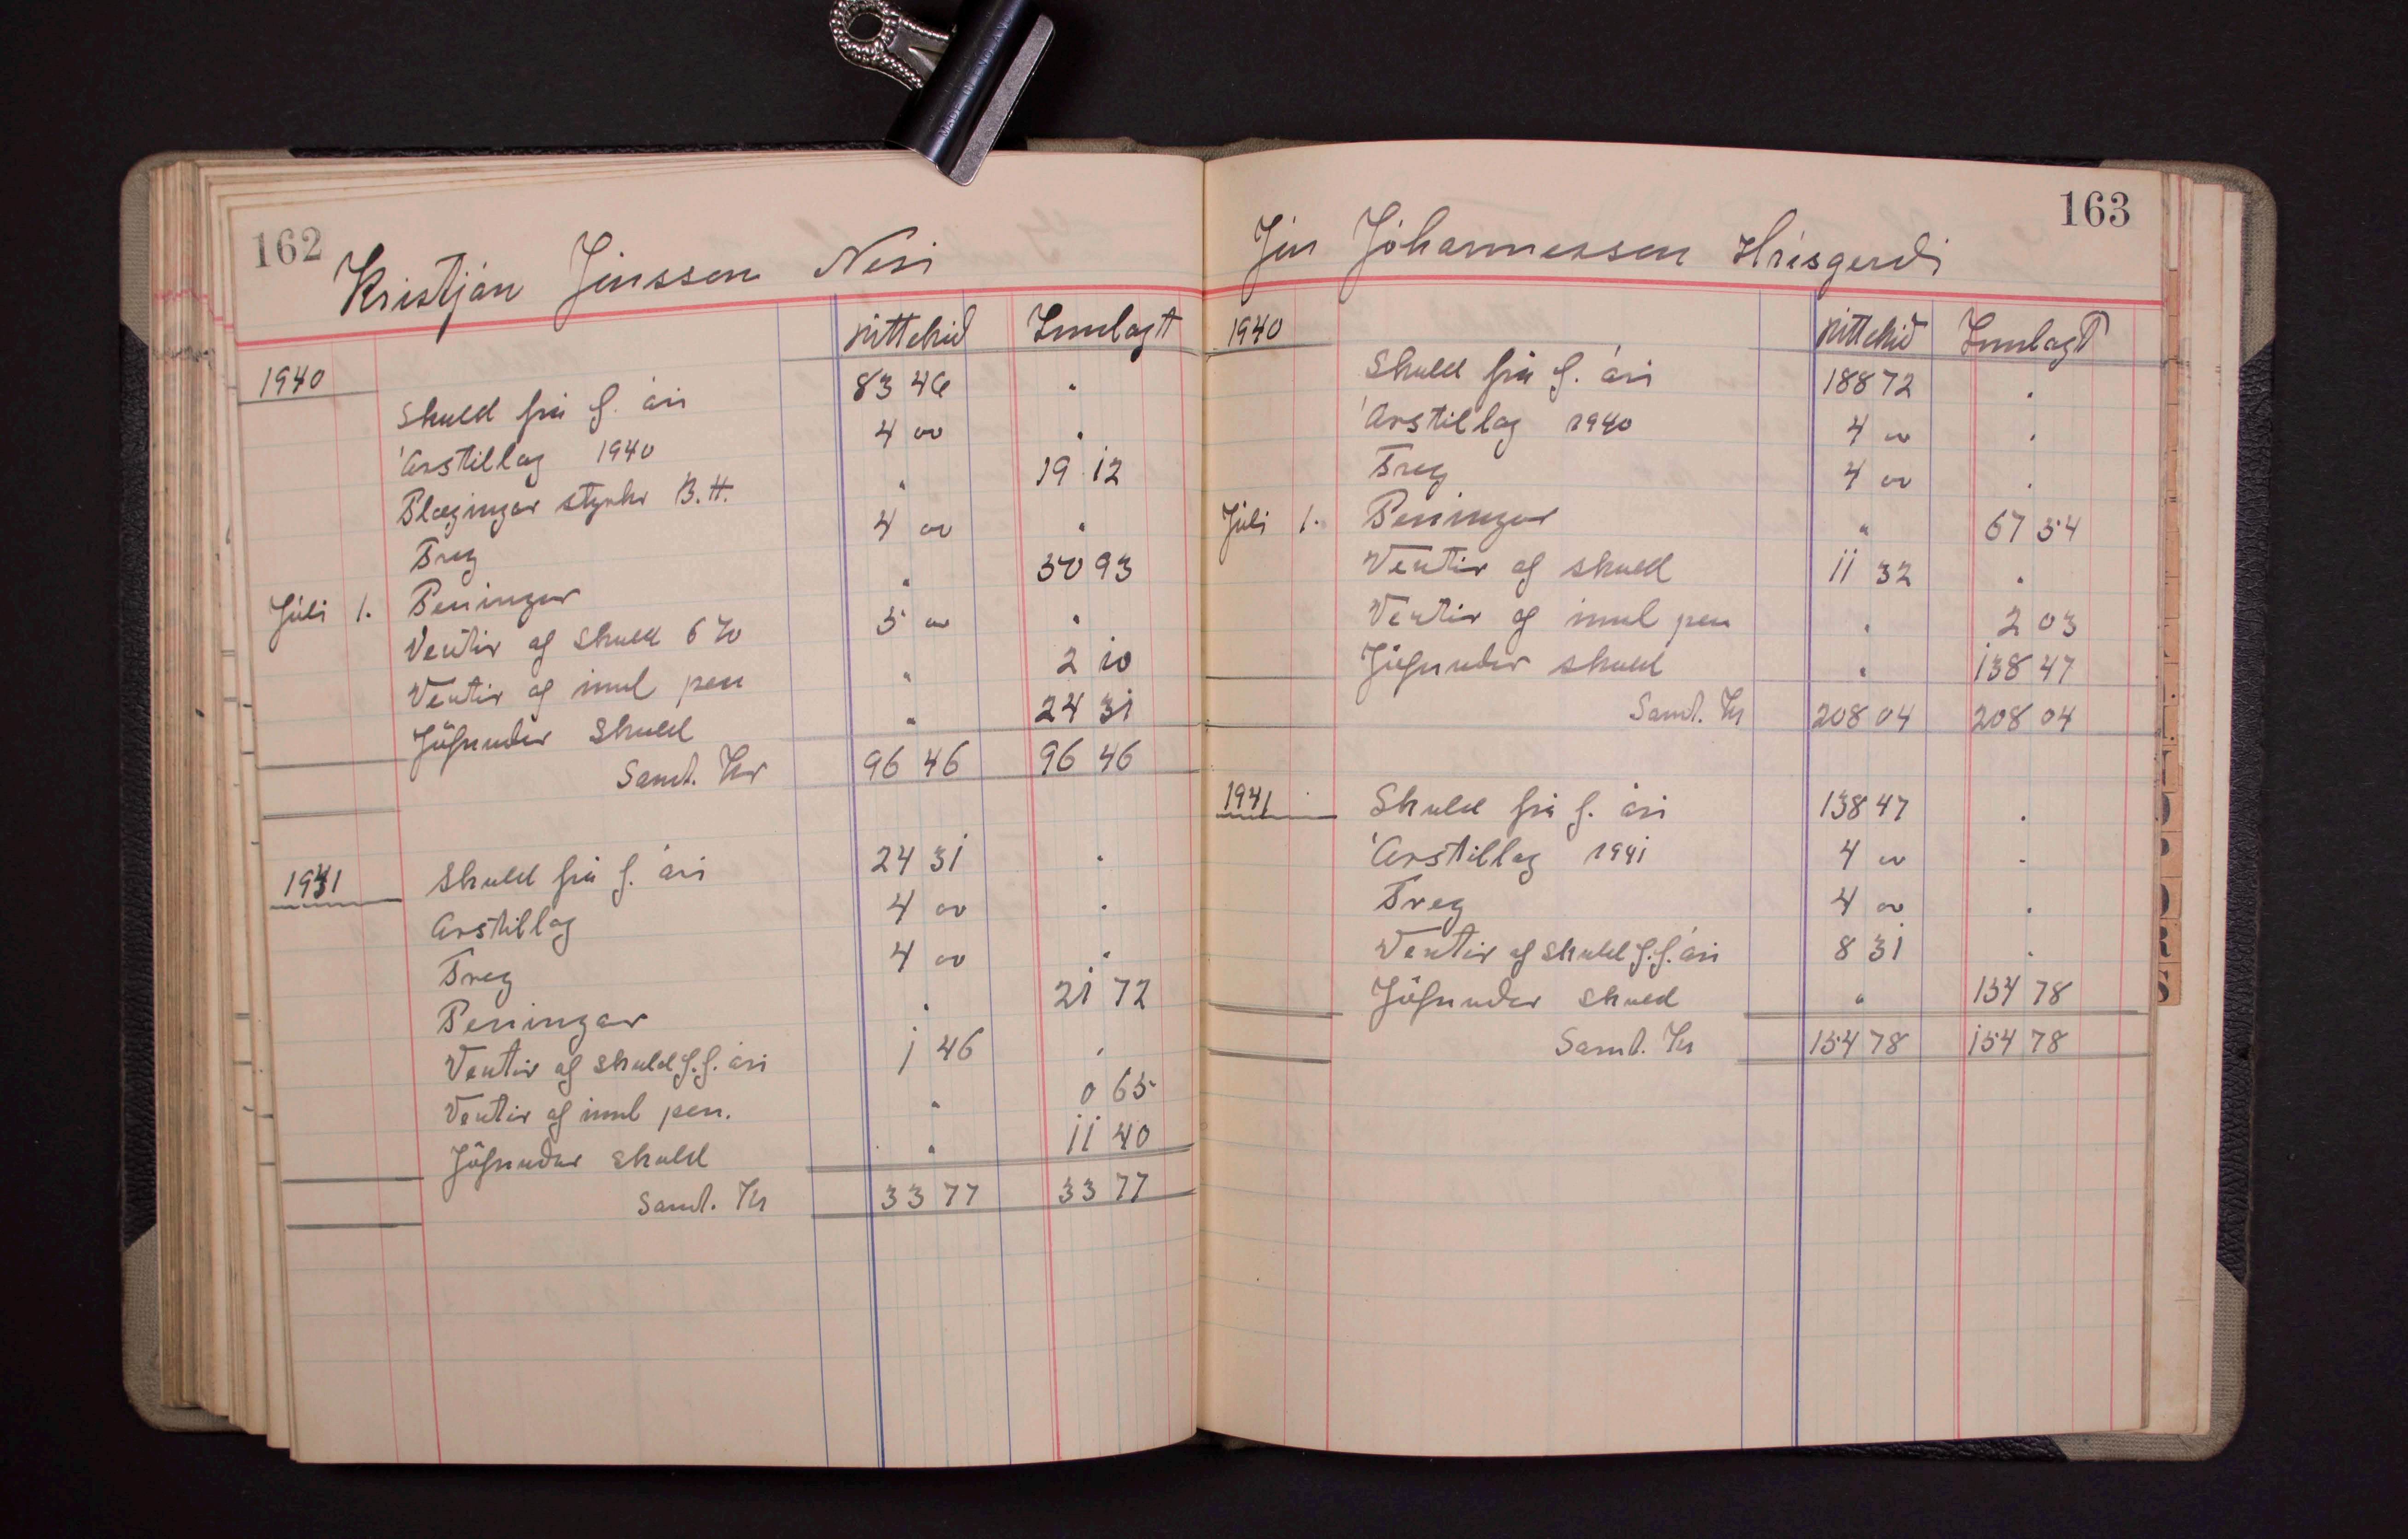 162
Kristján Jónsson Nesi
úttekið Innlagt
1940
Skuld frá f. ári 83 46 "
Árstillag 1940 4 00 "
Plægingar styrkr B.H. " 19 12
Freg 4 00 "
Júlí 1. Peningar " 50 93
Vextir af skuld 6% 5 00 "
Vextir af innl pen " 2 10
Jöfnuður Skuld " 24 31
Samt. Kr 96 46 96 46
1941 Skuld frá f. ári 24 31 "
Arstillag 4 00 "
Freg 4 00 "
Peningar " 21 72
Vextir af skuld f.f. ári 1 46 "
Vextir af innl pen. " 0 65
Jöfnuður skuld " 11 40
Samt. Kr 33 77 33 77
163
Jón Jóhannesson Hrísgerdi
1940 úttekið Innlagt
Skuld frá f. ári 188 72 "
Árstillag 1940 4 00 "
Freg 4 00 "
Júlí 1. Peningar " 67 54
Vextir af skuld 11 32 "
Vextir af innl pen " 2 03
Jöfnuður skuld " 138 47
Samt. Kr 208 04 208 04
1941 Skuld frá f. ári 138 47 "
Árstillag 1941 4 00 "
Freg 4 00 "
Vextir af skuld f.f. ári 8 31 "
Jöfnuður skuld " 154 78
Samt. Kr 154 78 154 78